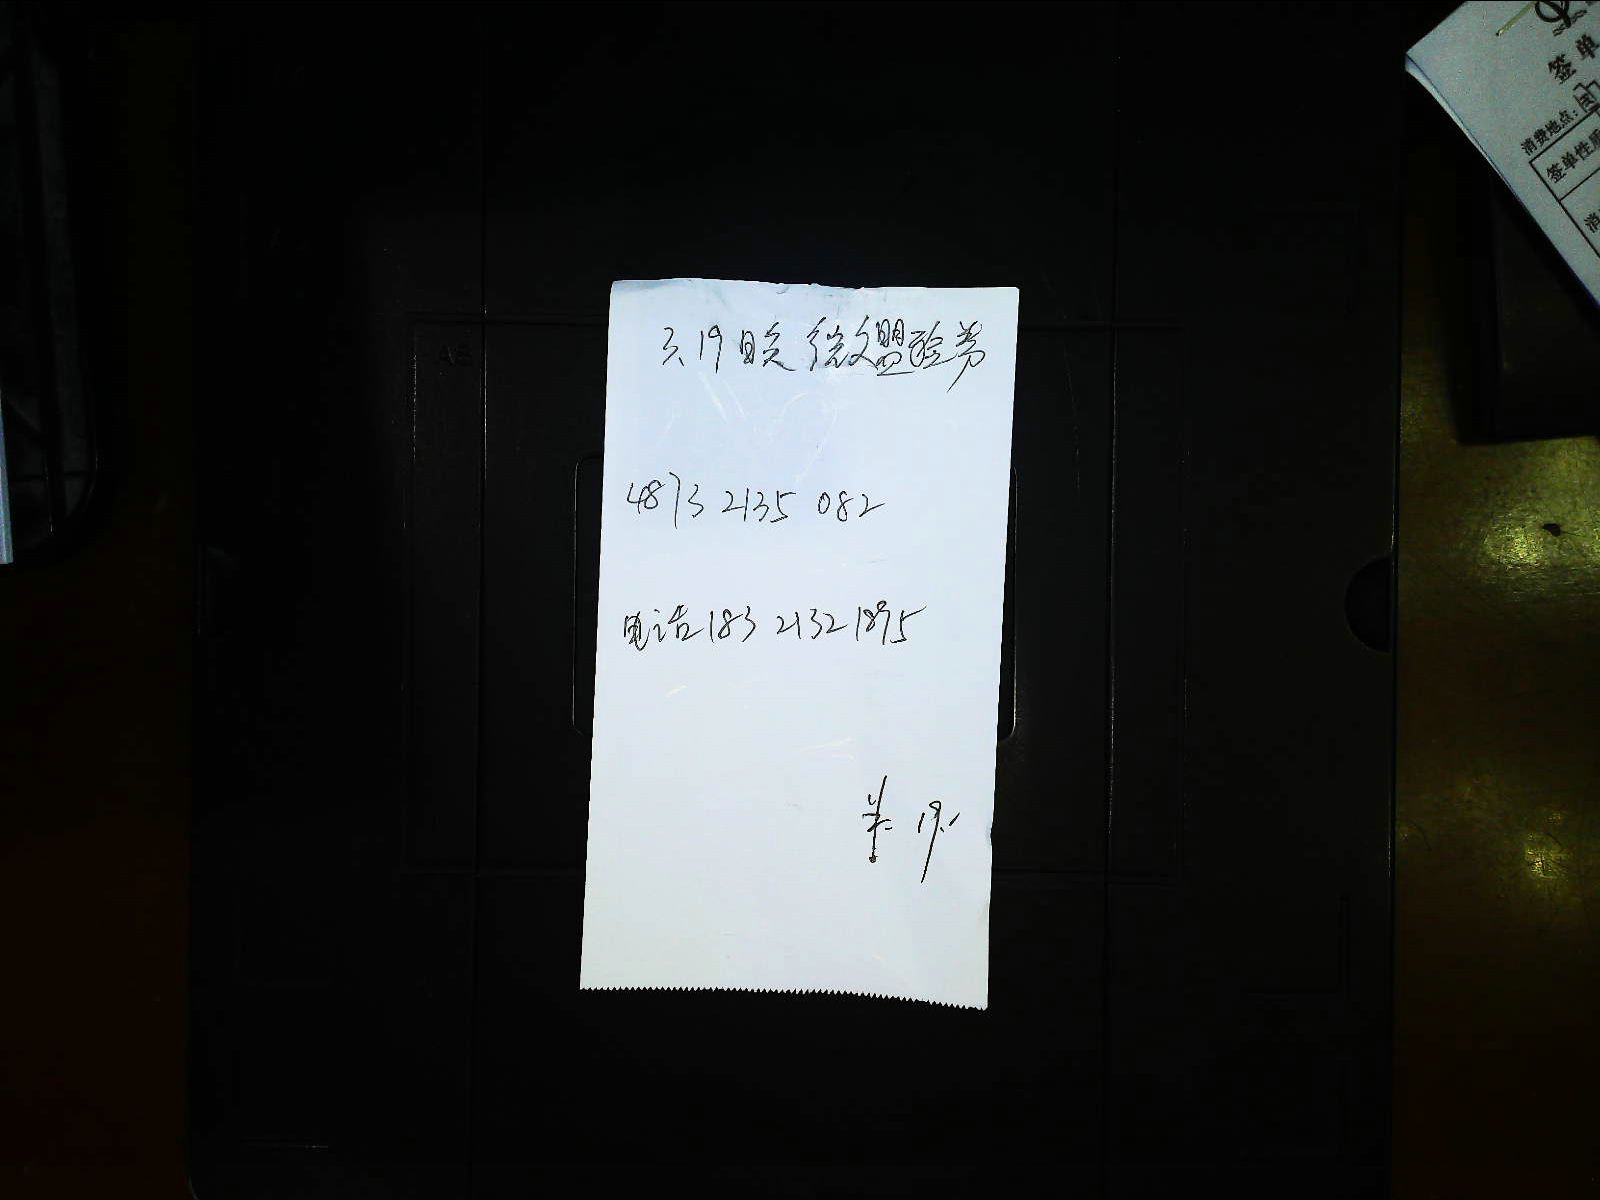 3.19日晚 微盟验券
4873 2135 082
电话 183 2132 1895
签单
消费地点：
签单性质
消